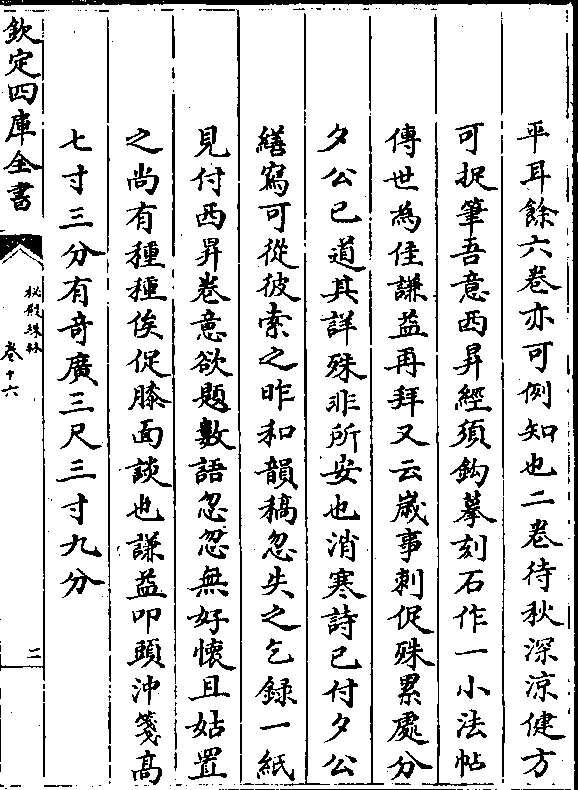 平耳餘六卷亦可例知也二卷待秋深涼健方
可捉筆吾意西昇經須鈎摹刻石作一小法帖
傳世為佳謙益再拜又云歲事刺促殊累處分
夕公已道其詳殊非所安也消寒詩已付夕公
繕寫可從彼索之昨和韻稿忽失之乞録一紙
見付西昇卷意欲題數語忽忽無好懷且姑置
之尚有種種俟促膝面談也謙益叩頭沖箋高
七寸三分有奇廣三尺三寸九分
欽定四庫全書
秘殿珠林
卷十六
二